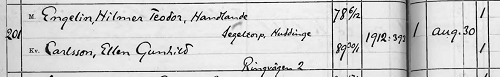 M Engelin, Hilmer Teodor, Handlande 78 6/12
Segeltorp, Huddinge
201 1912:393 1 aug. 30 1
Kv. Carlsson, Ellen Gunhild 89 30/1 1
Ringvägen 2